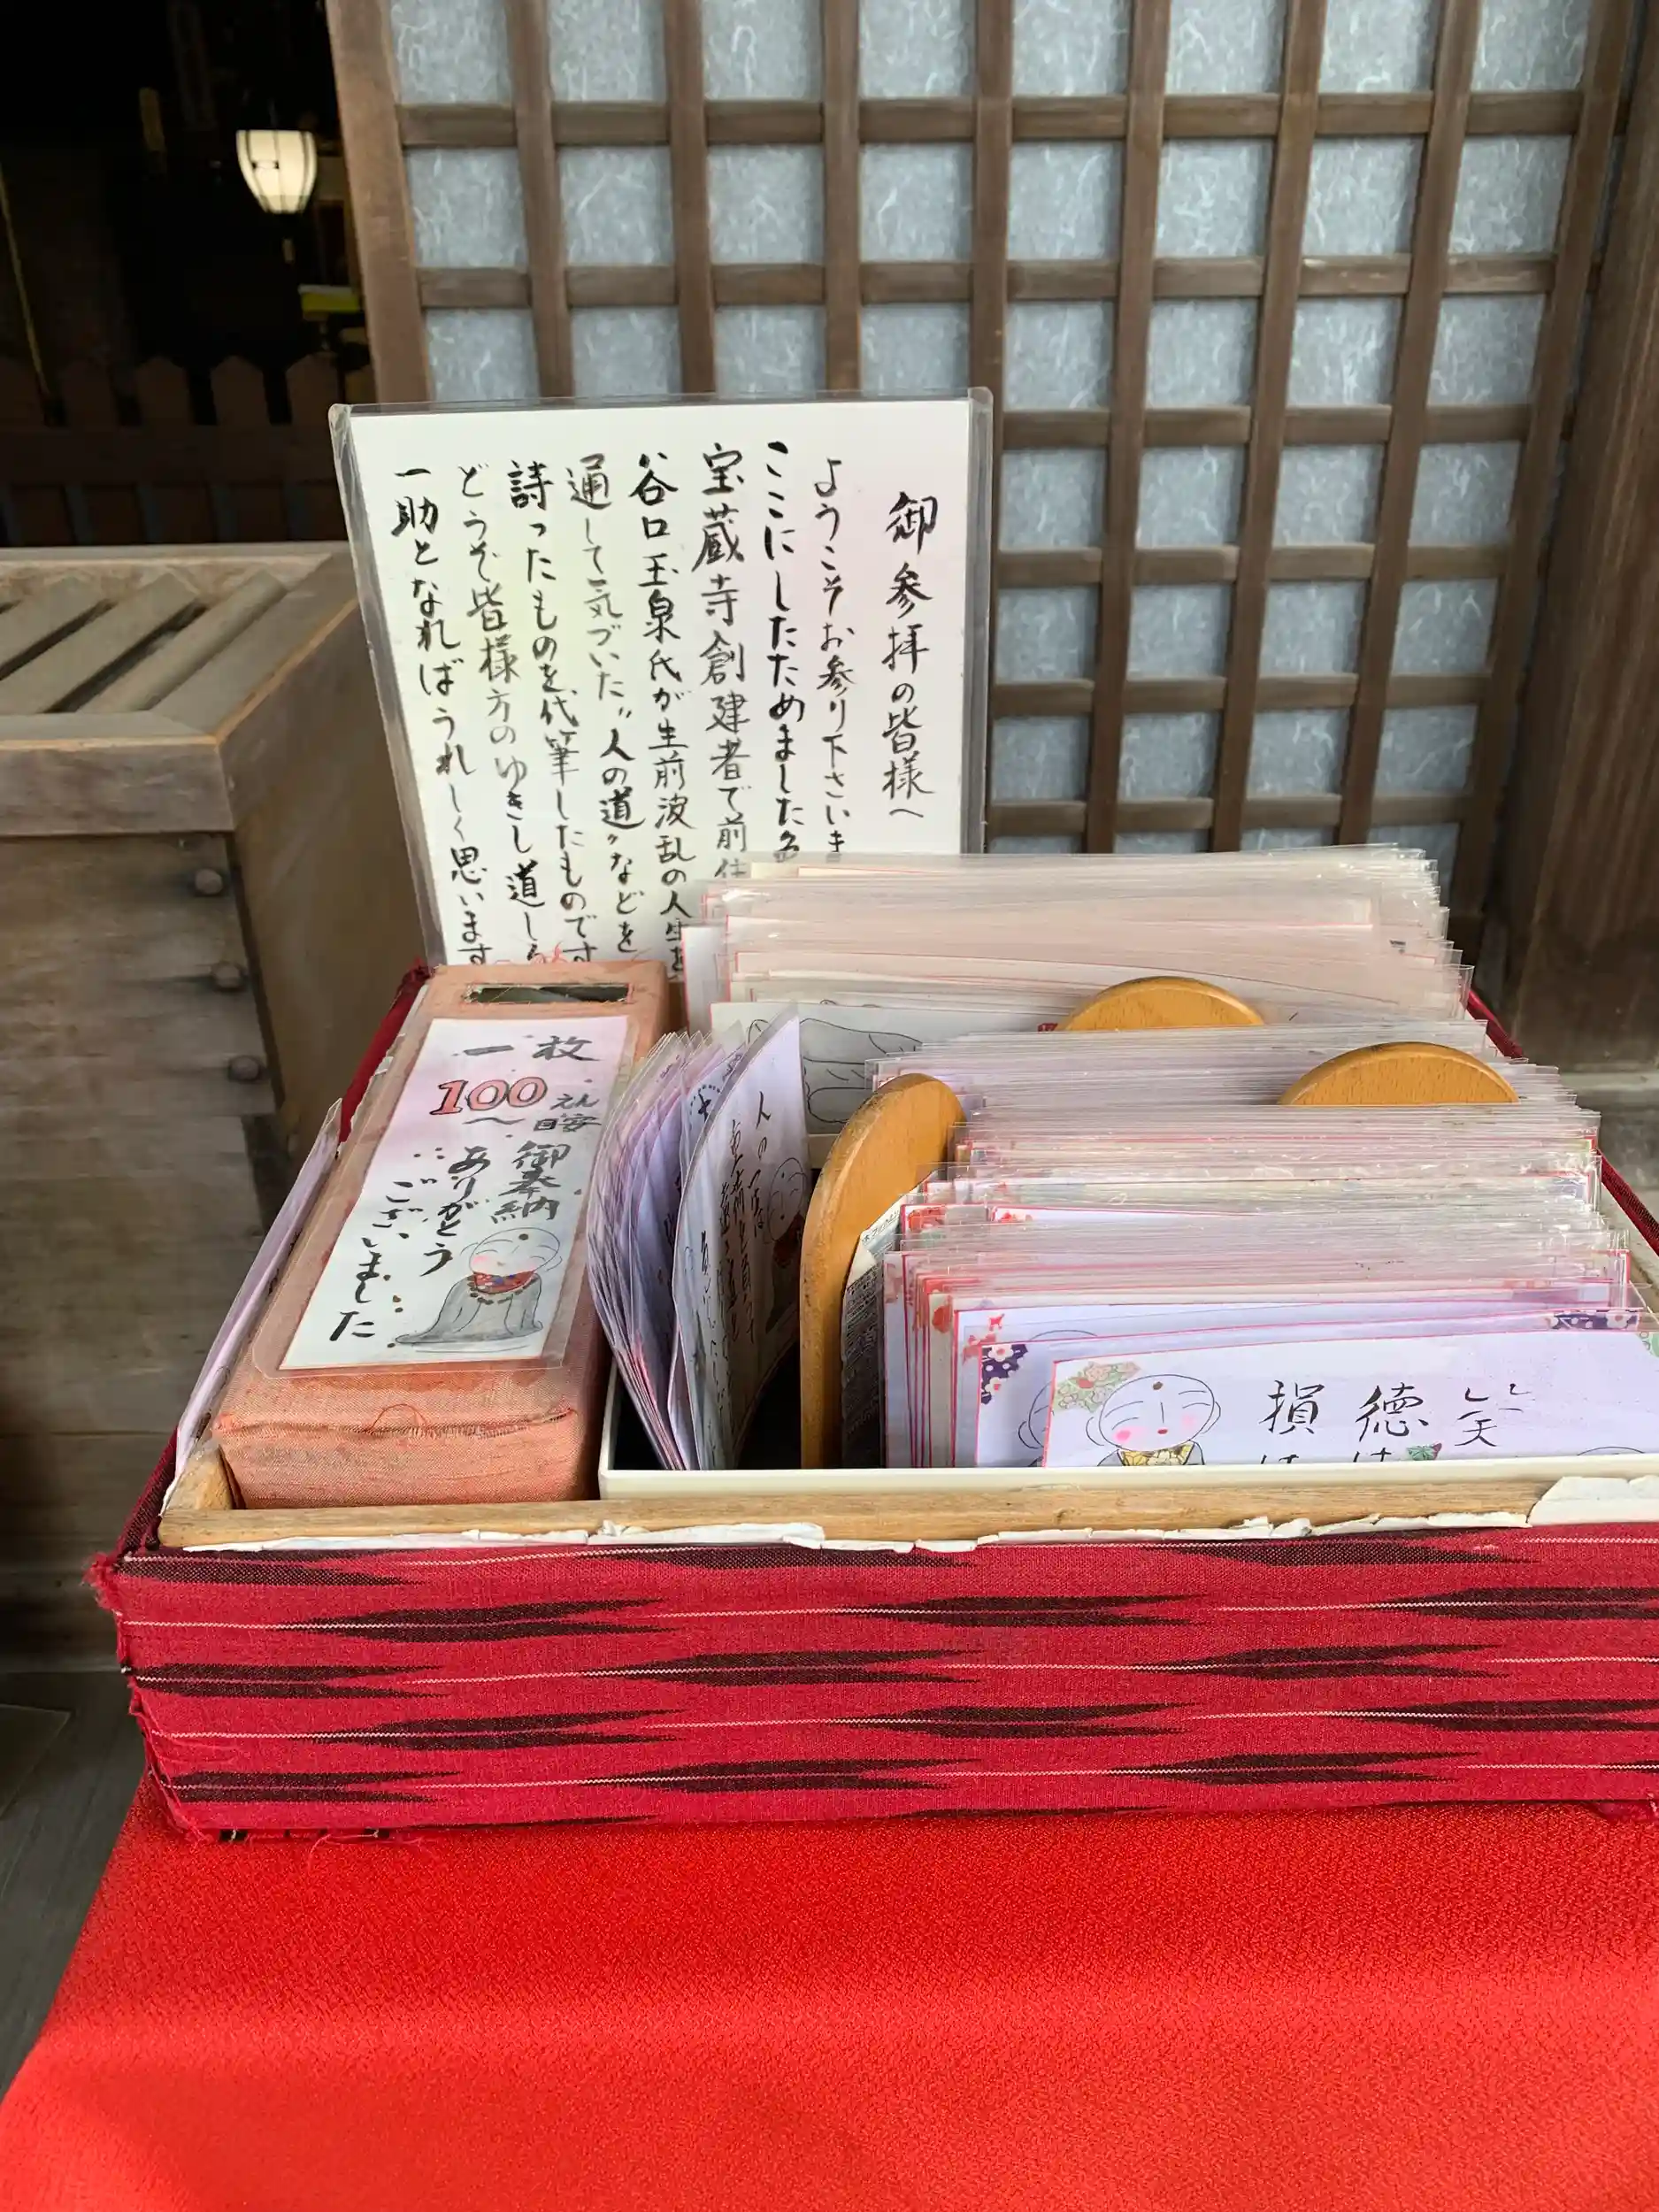 御参拝の皆様へ
ようこそお参り下さいま
ここにしたためました
宝蔵寺創建者で前住
谷口玉泉氏が生前波乱の人生を
通して気づいた〝人の道〟などを
詩ったものを代筆したものです
どうぞ皆様方のゆきし道し
一助となればうれしく思います
一枚
100えん
御奉納
ありがとう
ございました
人の
笑
徳は
損は